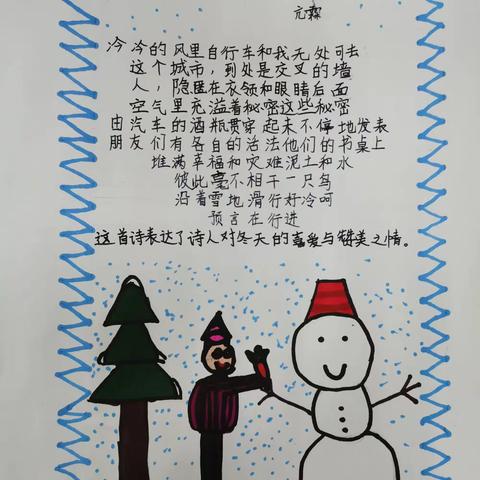 亢霖
冷冷的风里自行车和我无处可去
这个城市，到处是交叉的墙
人，隐匿在衣领和眼睛后面
空气里充溢着秘密这些秘密
由汽车的酒瓶贯穿起来不停地发表
朋友们有各自的活法他们的书桌上
堆满幸福和灾难泥土和水
彼此毫不相干一只鸟
沿着雪地滑行好冷呵
预言在行进
这首诗表达了诗人对冬天的喜爱与赞美之情。